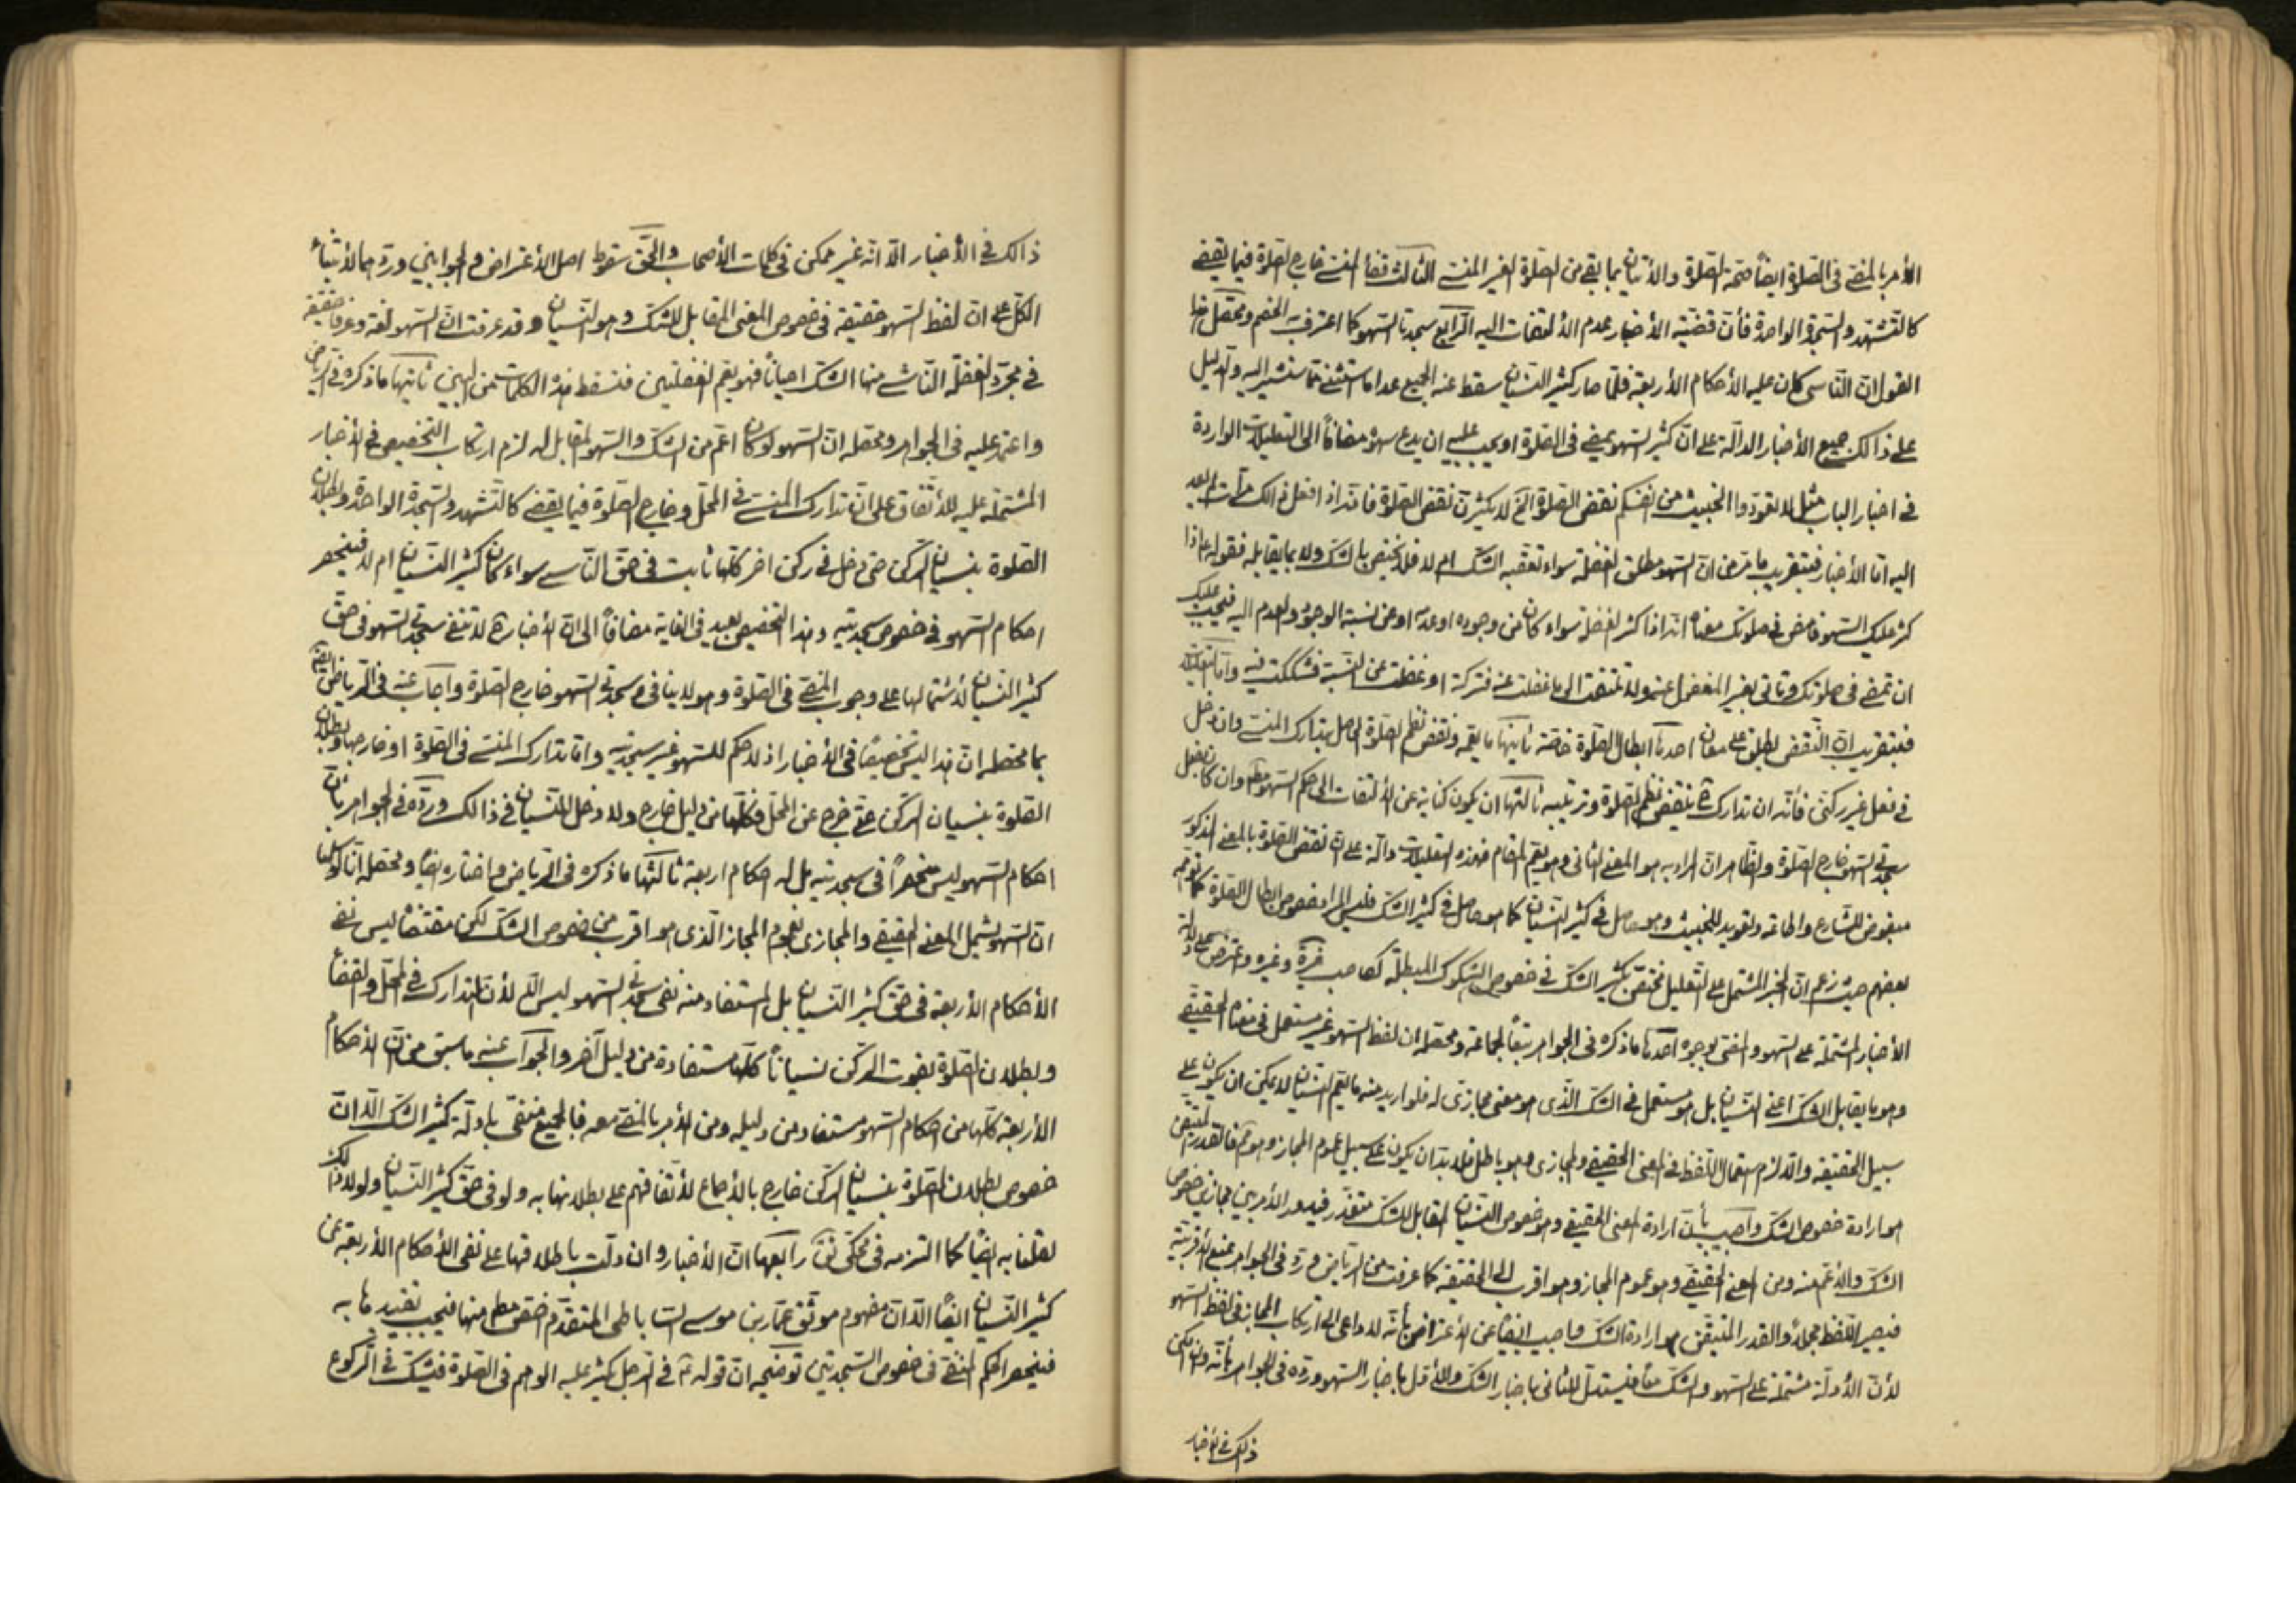 الأمر بالمضي في الصلوة ايضاً صحة الصلوة والأتيان بما بقي من الصلوة لغير المنسي الثالث قضاء المنسي خارج الصلوة فيما يقضى
كالتشهد والسجدة الواحدة فأن قضية الأخبار عدم الألتفات اليه الرابع سجدتا السهو كما اعترف به الخصم ومحصل هذا
القول ان الناسي كان عليه الأحكام الأربعة فلما صار كثير النسيان سقط عنه الجميع عدا ما استثني مما سنشير اليه والدليل
على ذالك جميع الأخبار الدالة على ان كثير السهو يمضي في الصلوة او يجب عليه ان يدع سهوه مضافاً الى التعليلات الواردة
في اخبار الباب مثل لا تعودوا الخبيث من انفسكم نقض الصلوة الخ لا يكثرن نقض الصلوة فانه اذا فعل ذالك مرات لم يعد
اليه اما الأخبار فبتقريب ما مر من ان السهو مطلق الغفلة سواء تعقبه الشك ام لا فلا يختص بالشك ولا بما يقابله فقوله ع اذا
كثر عليك السهو فامض في صلوتك معناه انه اذا كثر الغفلة سواء كان من وجوده او عدمه او من نسبة الوجود والعدم اليه فيجب عليك
ان تمضي في صلوتك وتاتي بغير المغفول عنه ولا تلتفت الى ما غفلت عنه فتركته او غفلت عن النسبة فشككت فيه واما التعليلات
فبتقريب ان النقض يطلق على معان احدها ابطال الصلوة خاصة ثانيها ما يعمه ونقض نظم الصلوة الحاصل بتدارك المنسي وان دخل
في فعل غير ركني فأنه ان تداركه ح ينتقض نظم الصلوة وترتيبه ثالثها ان يكون كناية عن الألتفات الى حكم السهو مط وان كان بفعل
سجدتي السهو خارج الصلوة والظاهر ان المراد به هو المعنى الثاني وهو يعم المقام فهذه التعليلات دالة على ان نقض الصلوة بالمعنى المذكور
مبغوض للشارع واطاعة وتعويد للخبيث وهو حاصل في كثير النسيان كما هو حاصل في كثير الشك فليس المراد خصوص ابطال الصلوة كما توهمه
بعضهم حيث زعم ان الخبر المشتمل على التعليل مختص بكثير الشك في خصوص الشكوك المبطلة كصاحب خيرة وغيره واعترض على دلالة
الأخبار المشتملة على السهو والمضي بوجوه احدها ما ذكره في الجواهر تبعاً لجماعة ومحصله ان لفظ السهو غير مستعمل في معناه الحقيقي
وهو ما يقابل الشك اعني النسيان بل هو مستعمل في الشك الذي هو معنى مجازي له فلو اريد منه ما يعم النسيان لا يمكن ان يكون على
سبيل الحقيقة والا لزم استعمال اللفظ في المعنى الحقيقي والمجازي وهو باطل فلا بد ان يكون على سبيل عموم المجاز وهو مم فالقدر المتيقن
هو ارادة خصوص الشك واجيب بأن ارادة المعنى الحقيقي وهو خصوص النسيان المقابل للشك متعذر فيدور الأمر بين مجازين خصوص
الشك والأعم منه ومن المعنى الحقيقي وهو عموم المجاز وهو اقرب الى الحقيقة كما عرفت من الرياض ورد في الجواهر بمنع الأقربية
فيصير اللفظ مجملاً والقدر المتيقن ارادة الشك واجيب ايضاً عن الأعتراض بأنه لا داعي الى ارتكاب المجاز في لفظ السهو
لأن الأدلة مشتملة على السهو والشك معاً فليستدل للثاني باخبار الشك وللأول باخبار السهو ورده في الجواهر بأنه وان امكن
ذالك في الأخبار
ذالك في الأخبار الا انه غير ممكن في كلمات الأصحاب والحق سقوط اصل الأعتراض والجوابين ورد هما لأبتناء
الكل على ان لفظ السهو حقيقة في خصوص المعنى المقابل للشك وهو النسيان وقد عرفت ان السهو لغة وعرفا حقيقة
في مجرد الغفلة الناشي منها الشك احياناً فهو يعم الغفلتين فتسقط هذه الكلمات من البين ثانيها ما ذكره في الرياض
واعتمد عليه في الجواهر ومحصله ان السهو لو كان اعم من الشك والسهو المقابل له لزم ارتكاب التخصيص في الأخبار
المشتملة عليه للأتفاق على ان تدارك المنسي في المحل وخارج الصلوة فيما يقضى كالتشهد والسجدة الواحدة وبطلان
الصلوة بنسيان الركن حتى دخل في ركن اخر كلها ثابت في حق الناسي سواء كان كثير النسيان ام لا فينحصر
احكام السهو في خصوص سجدتيه وهذا التخصيص بعيد في الغاية مضافاً الى ان الأخبار ح لا تنفي سجدتي السهو في حق
كثير النسيان لأشتمالها على وجوب المضي في الصلوة وهو لا ينافي سجدتي السهو خارج الصلوة واجاب عنه في الرياض ايضاً
بما محصله ان هذا ليس تخصيصاً في الأخبار اذ لا حكم للسهو غير سجدتيه واما تدارك المنسي في الصلوة او خارجها وبطلان
الصلوة بنسيان الركن حتى خرج عن المحل فكلها من دليل خارج ولا دخل للنسيان في ذالك ورده في الجواهر بأن
احكام السهو ليس منحصراً في سجدتيه بل له احكام اربعة ثالثها ما ذكره في الرياض واختاره ايضاً ومحصله انا لو سلمنا
ان السهو يشمل المعنى الحقيقي والمجازي بعموم المجاز الذي هو اقرب من خصوص الشك لكن مقتضاه ليس نفي
الأحكام الأربعة في حق كثير النسيان بل المستفاد منه نفي سجدتي السهو ليس الا لأن التدارك في المحل والقضاء
وبطلان الصلوة بفوت الركن نسياناً كلها مستفادة من دليل آخر والجواب عنه ما سبق من ان الأحكام
الأربعة كلها من احكام السهو مستفاد من دليله ومن الأمر بالمضي معه فالجميع منفي بادلة كثير الشك الا ان
خصوص بطلان الصلوة بنسيان الركن خارج بالأجماع لأتفاقهم على بطلانها به ولو في حق كثير النسيان ولولا ذالك
لقلنا به ايضاً كما التزمه في محكي رابعها ان الأخبار وان دلت باطلاقها على نفي الأحكام الأربعة عن
كثير النسيان ايضاً الا ان مفهوم موثق عمار بن موسى الساباطي المتقدم اخص مط منها فيجب تقييدها به
فينحصر الحكم المنفي في خصوص السجدتين توضيحه ان قوله ع في الرجل يكثر عليه الوهم في الصلوة فيشك في الركوع